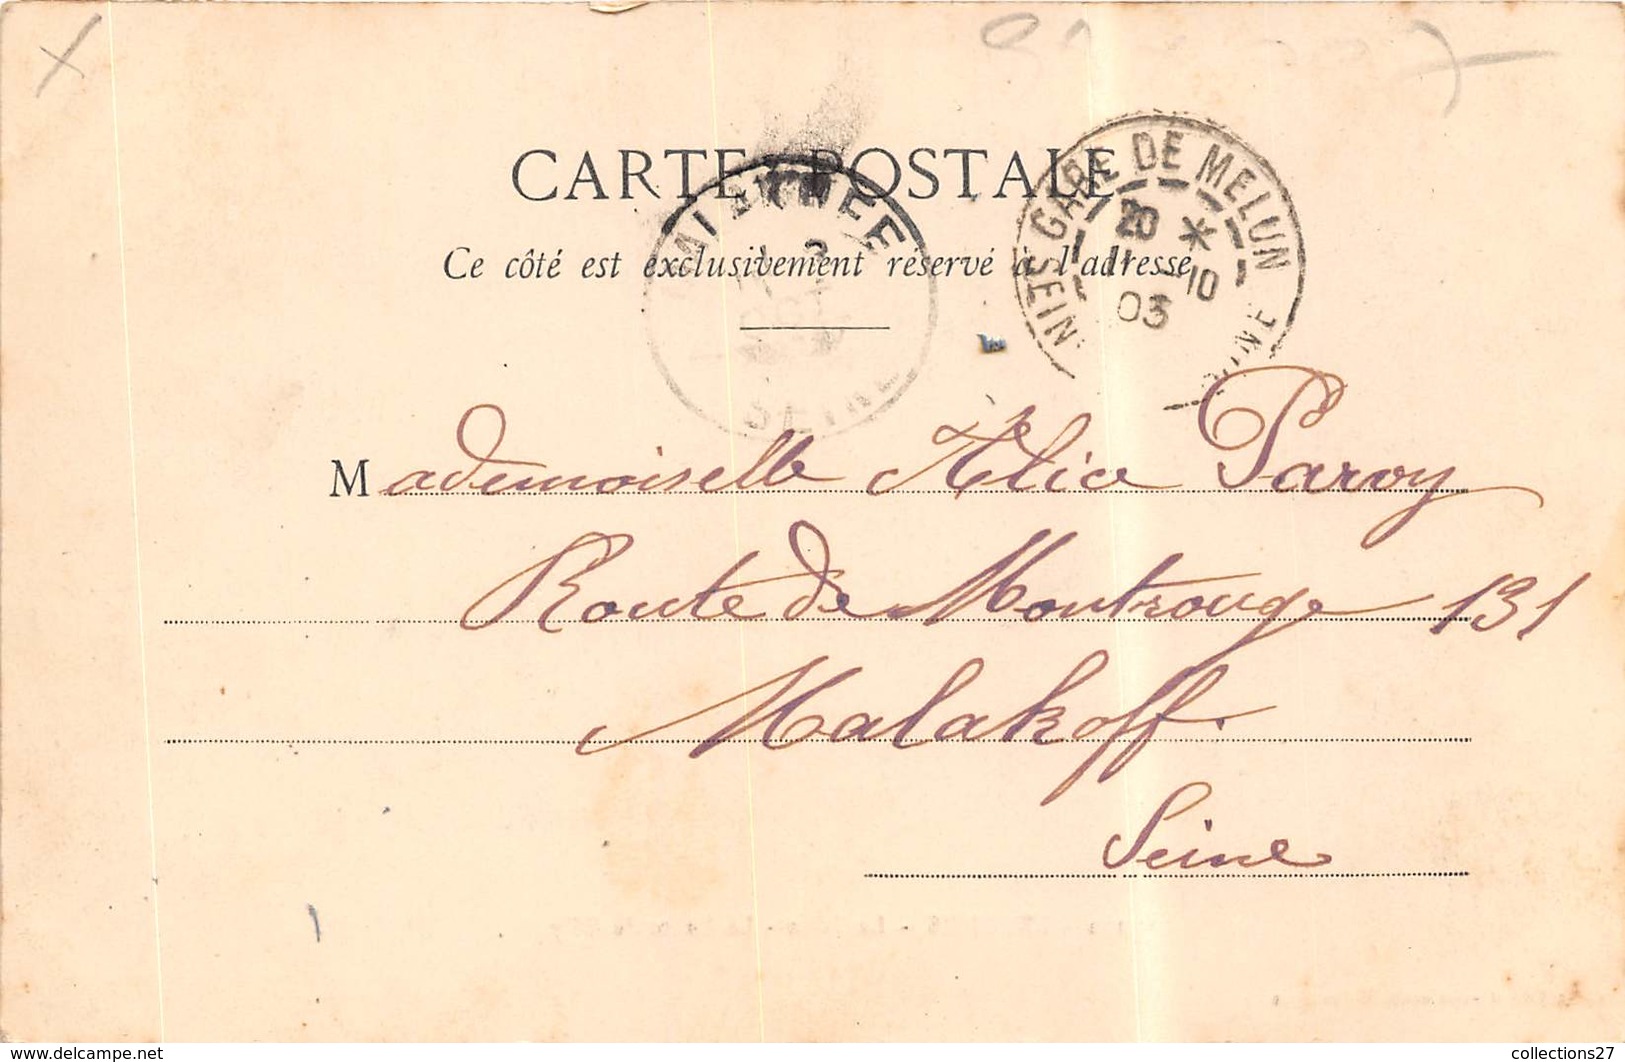 CARTE POSTALE
Ce côté est exclusivement réservé à l'adresse
GARE DE MELUN
20 *
1 -10
03
SEINE
Mademoiselle Alice Paroy
Route de Montrouge 131
Malakoff.
Seine
www.delcampe.net
collections27